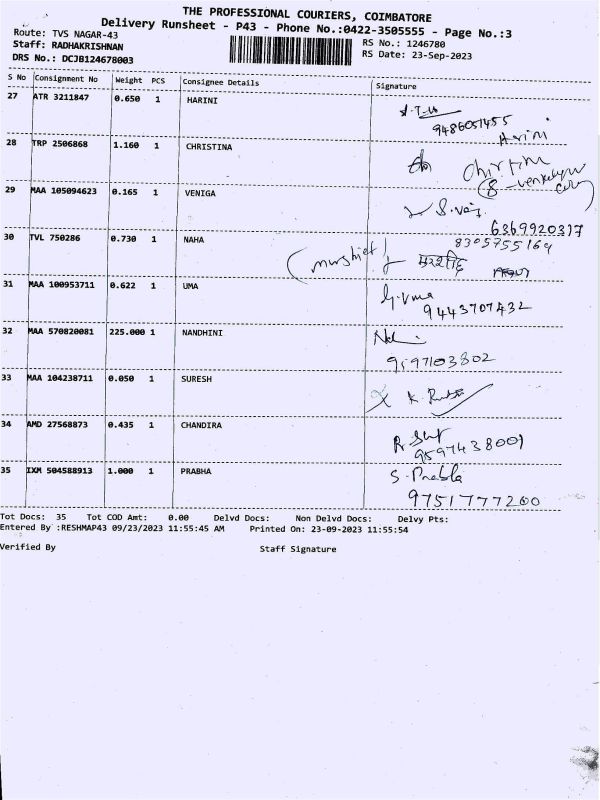 THE PROFESSIONAL COURIERS, COIMBATORE
Delivery Runsheet - P43 - Phone No.:0422-3505555 - Page No.:3
Route: TVS NAGAR-43
Staff: RADHAKRISHNAN
DRS No.: DCJB124678003
RS No.: 1246780
RS Date: 23-Sep-2023
S No Consignment No Weight PCS Consignee Details Signature
27 ATR 3211847 0.650 1 HARINI
9486051455
Harini
28 TRP 2506868 1.160 1 CHRISTINA
29 MAA 105094623 0.165 1 VENIGA
6369920317
30 TVL 750286 0.730 1 NAHA
8305755169
31 MAA 100953711 0.622 1 UMA
G.Uma
9443707432
32 MAA 570820081 225.000 1 NANDHINI
9597103802
33 MAA 104238711 0.050 1 SURESH
34 AMD 27568873 0.435 1 CHANDIRA
9597438001
35 IXM 504588913 1.000 1 PRABHA
S. Prabla
9751777200
Tot Docs: 35 Tot COD Amt: 0.00 Delvd Docs: Non Delvd Docs: Delvy Pts:
Entered By :RESHMAP43 09/23/2023 11:55:45 AM Printed On: 23-09-2023 11:55:54
Verified By Staff Signature